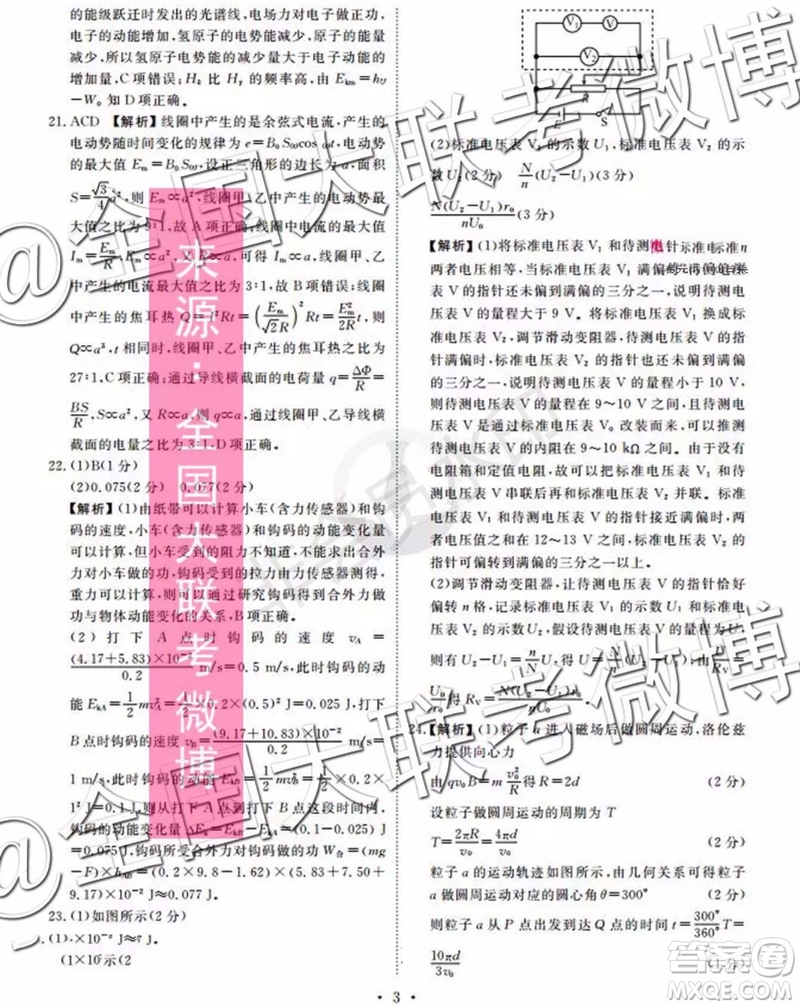 的能级跃迁时发出的光谱线，电场力对电子做正功，
电子的动能增加，氢原子电势能的减少，原子的能量
减少，所以氢原子电势能的减少量大于电子动能的
增加量，C项错误；Hδ 比 Hγ 的频率高，由 Ekm＝hν
－W₀ 知 D 项正确。
21. ACD 【解析】线圈中产生的是余弦式电流，产生的
电动势随时间变化的规律为 e＝B₀Sωcos ωt，电动势
的最大值 Em＝B₀Sω，设正三角形的边长为 a，面积
S＝√3/4 a²，则 Em∝a²，线圈甲、乙中产生的电动势最
大值之比为 9∶1，故 A 项正确；线圈中产生的电流
Im＝Em/R，又 R∝a，则 Im∝a，线圈甲、乙中产生的电
流最大值之比为 3∶1，故 B 项错误；由
产生的焦耳热 Q＝(Em/√2R)²Rt＝Em²t/2R，可知
Q∝a³，故线圈甲、乙中产生的焦耳热之比为
27∶1，C 项正确；通过导线横截面的电荷量 q＝ΔΦ/R＝
BS/R，S∝a²，又 R∝a，则 q∝a，故线圈甲、乙导线横
截面的电量之比为 3∶1，D 项正确。
22. (1)B(1 分)
(2)0.075(2 分) 0.077(2 分)
【解析】(1)由纸带可以计算小车(含力传感器)和钩
码的速度，小车(含力传感器)和钩码的动能变化量
可以计算，但小车受到的阻力不知道，所以求合外
力对小车做的功，钩码受到的拉力由力传感器测得，
重力可以计算，可以通过研究钩码得到合外力做
功与物体动能变化的关系，B 项正确。
(2) 打下 A 点时钩码的速度 vA＝
(4.17＋5.83)×10⁻²/0.2 m/s＝0.5 m/s，此时钩码的动
能 EkA＝1/2 mvA²＝1/2×0.2×(0.5)² J＝0.025 J；打下
B 点时钩码的速度 vB＝(9.17＋10.83)×10⁻²/0.2 m/s＝
1 m/s，此时钩码的动能 EkB＝1/2 mvB²＝1/2×0.2×1² J
＝0.1 J，则从打下 A 点到打下 B 点过程中
钩码的动能变化量 ΔEk＝EkB－EkA＝(0.1－0.025)
J＝0.075 J，钩码所受合外力做功 W合＝(mg
－F)×hAB＝(0.2×9.8－1.62)×(5.83＋7.50＋
9.17)×10⁻² J≈0.077 J。
23. (1)如图所示(2 分)
(1).×10⁻² J≈。
(1×10 示(2
V₁
V₂
R
E
S
(2)标准电压表 V₁ 的示数 U₁，标准电压表 V₂ 的示
数 U₂(2 分) N/n(U₂－U₁)(3 分)
N(U₂－U₁)r₀/nU₀(3 分)
【解析】(1)将标准电压表 V₁ 和待测电
两者电压相等，当标准电压表 V₁ 满偏
表 V 的指针还未偏到满偏的三分之一，说明待测电
压表 V 的量程大于 9 V。将标准电压表 V₁ 换成标
准电压表 V₂，调节滑动变阻器，待测电压表 V 的指
针满偏时，标准电压表 V₂ 的指针也还未偏到满偏
的三分之一，说明待测电压表 V 的量程小于 10 V，
则待测电压表 V 的量程在 9～10 V 之间，且待测电
压表 V 是由标准电压表 V₀ 改装而来，可以推测
待测电压表 V 的内阻在 9～10 kΩ 之间。由于没有
电阻箱和定值电阻，可以把标准电压表 V₁ 和待测
电压表 V 串联后再和标准电压表 V₂ 并联。标准电
压表 V₁ 和待测电压表 V 的指针接近满偏时，两者
电压之和在 12～13 V 之间，标准电压表 V₂ 的指针
可偏转到满偏的三分之一以上。
(2)调节滑动变阻器，让待测电压表 V 的指针恰好
偏转 n 格，记录标准电压表 V₁ 的示数 U₁、标准电压
表 V₂ 的示数 U₂，假设待测电压表 V 的量程为 U，
则有 U₂－U₁＝n/N U，解得 U＝N/n(U₂－U₁)。由 U/RV＝
U₀/r₀ 得 RV＝N(U₂－U₁)r₀/nU₀。
24. 【解析】(1)粒子 a 进入磁场后做圆周运动，洛伦兹
力提供向心力
由 qv₀B＝m v₀²/R 得 R＝2d (2 分)
设粒子做圆周运动的周期为 T
T＝2πR/v₀＝4πd/v₀ (2 分)
粒子 a 的运动轨迹如图所示，由几何关系可得粒子
a 做圆周运动对应的圆心角 θ＝300° (2 分)
则粒子 a 从 P 点运动到 Q 点的时间 t＝300°/360° T＝
10πd/3v₀ (1 分)
· 3 ·
@全国大联考微博
来源：全国大联考微博
答案圈
MXQE.COM